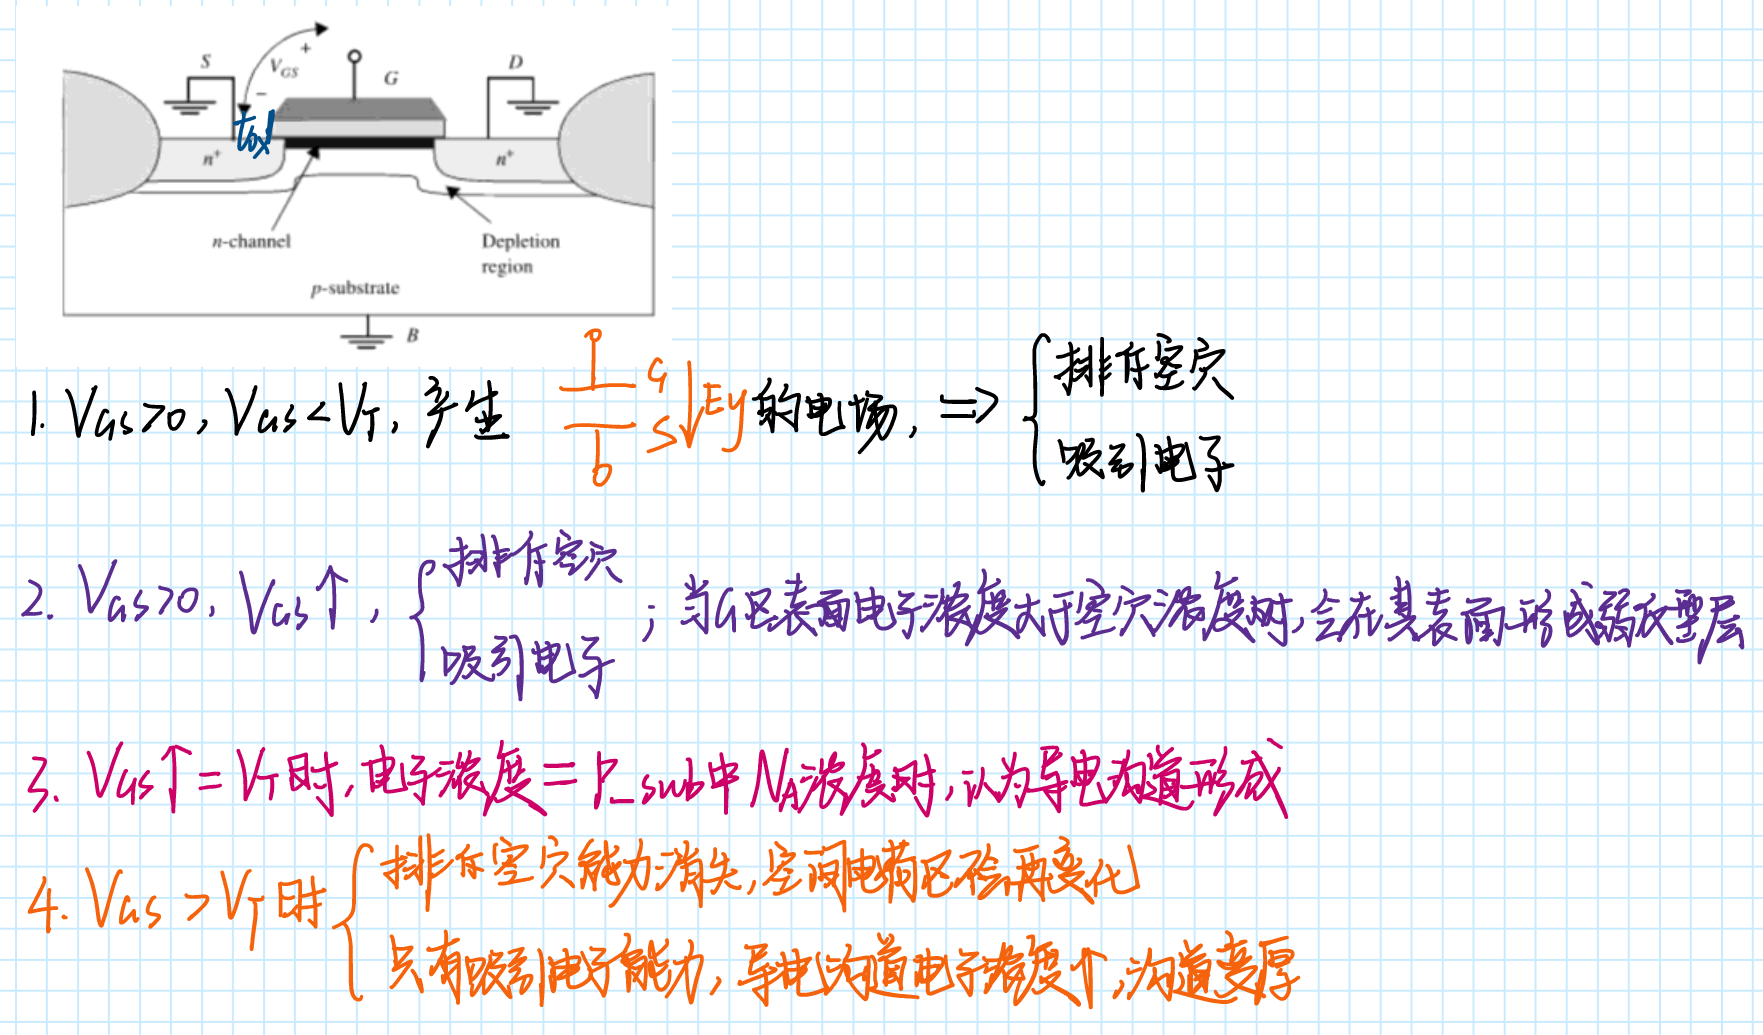 S
V_GS
+
−
G
D
tox
n+
n+
n-channel
Depletion
region
p-substrate
B
1. V_GS>0, V_GS<V_T, 产生 G S b ↓Ey 的电场, ⇒ { 排斥空穴
吸引电子
2. V_GS>0, V_GS↑, { 排斥空穴
吸引电子
; 当G区表面电子浓度大于空穴浓度时, 会在其表面形成弱反型层
3. V_GS↑=V_T时, 电子浓度=P_sub中N_A浓度时, 认为导电沟道形成
4. V_GS>V_T时 { 排斥空穴能力消失, 空间电荷区不会再变化
只有吸引电子能力, 导电沟道电子浓度↑, 沟道变厚